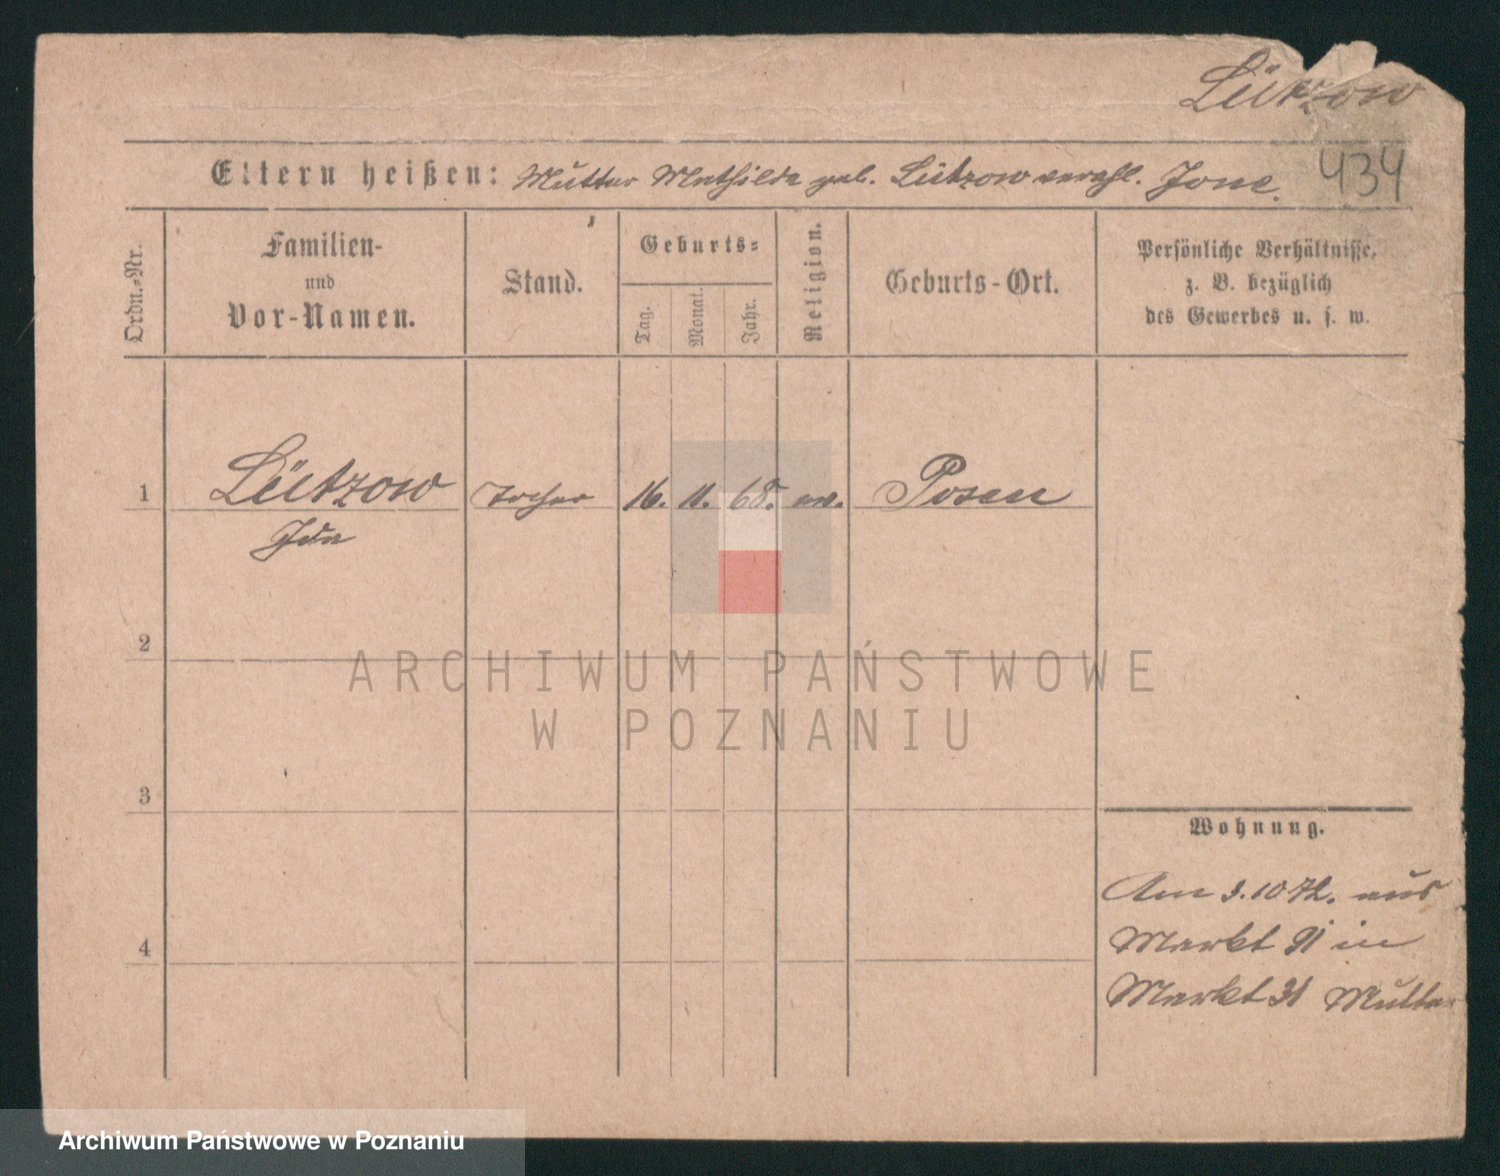 Lützow
434
Eltern heißen: Mutter Mathilde geb. Lützow verehl. Jone.
Ordn.-Nr.
Familien-
und
Vor-Namen.
Stand.
Geburts-
Tag.
Monat.
Jahr.
Religion.
Geburts-Ort.
Persönliche Verhältnisse,
z. B. bezüglich
des Gewerbes u. s. w.
1 Lützow Tochter 16. 11. 68. ev. Posen
Ida
2
3
4
Wohnung.
Am 3.10 72. aus
Markt 91 in
Markt 31 Mutter
ARCHIWUM PAŃSTWOWE
W POZNANIU
Archiwum Państwowe w Poznaniu